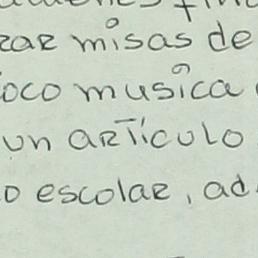 zar misas de
oco musica
un artículo
o escolar, ad